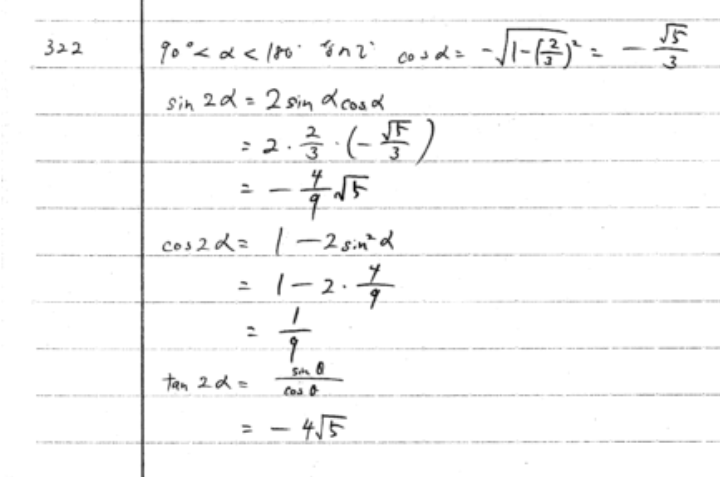 322 90°<α<180° なので cosα = -√(1-(2/3)²) = -√5/3
sin 2α = 2 sin α cos α
= 2・2/3・(-√5/3)
= -4/9 √5
cos 2α = 1 - 2 sin² α
= 1 - 2・4/9
= 1/9
tan 2α = sin θ / cos θ
= -4√5